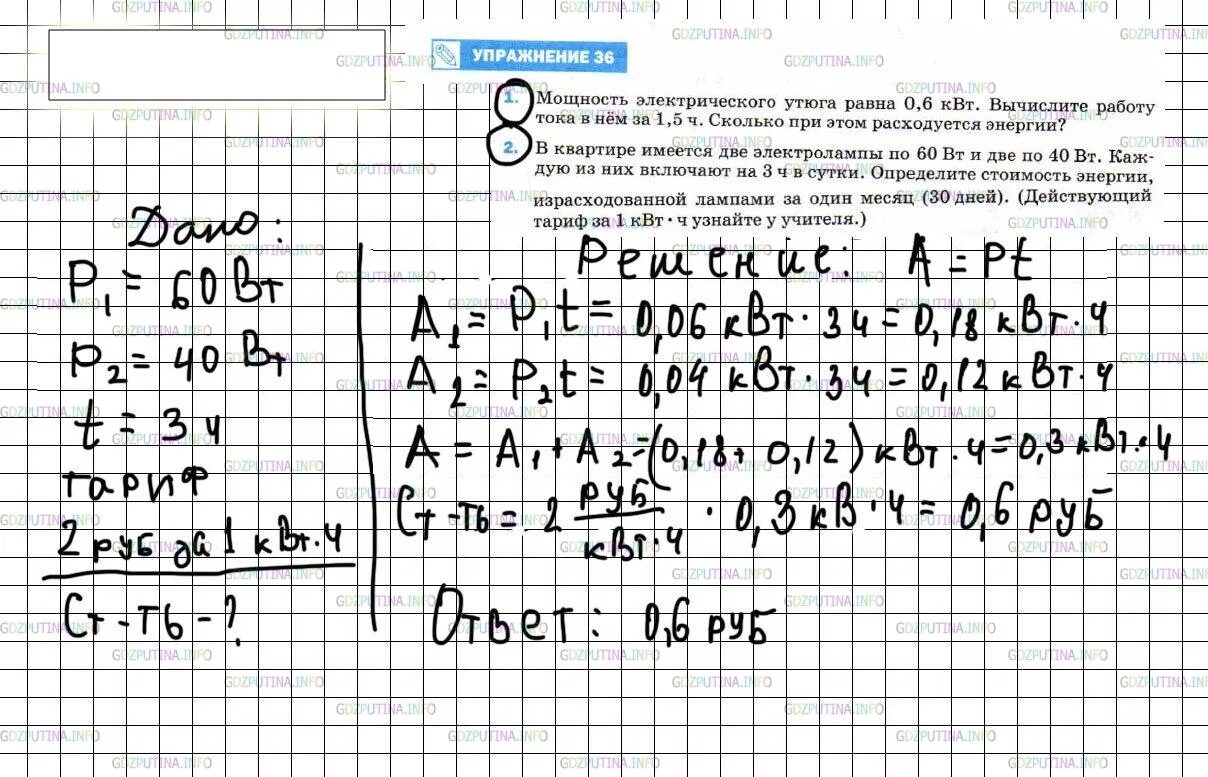 УПРАЖНЕНИЕ 36
1. Мощность электрического утюга равна 0,6 кВт. Вычислите работу
тока в нём за 1,5 ч. Сколько при этом расходуется энергии?
2. В квартире имеется две электролампы по 60 Вт и две по 40 Вт. Каж-
дую из них включают на 3 ч в сутки. Определите стоимость энергии,
израсходованной лампами за один месяц (30 дней). (Действующий
тариф за 1 кВт · ч узнайте у учителя.)
Дано:
P₁ = 60 Вт
P₂ = 40 Вт
t = 3 ч
тариф
2 руб за 1 кВт·ч
Ст-ть - ?
Решение: A = Pt
A₁ = P₁t = 0,06 кВт · 3ч = 0,18 кВт·ч
A₂ = P₂t = 0,04 кВт · 3ч = 0,12 кВт·ч
A = A₁ + A₂ = (0,18 + 0,12) кВт·ч = 0,3 кВт·ч
Ст-ть = 2 руб/кВт·ч · 0,3 кВ·ч = 0,6 руб
Ответ: 0,6 руб
GDZPUTINA.INFO